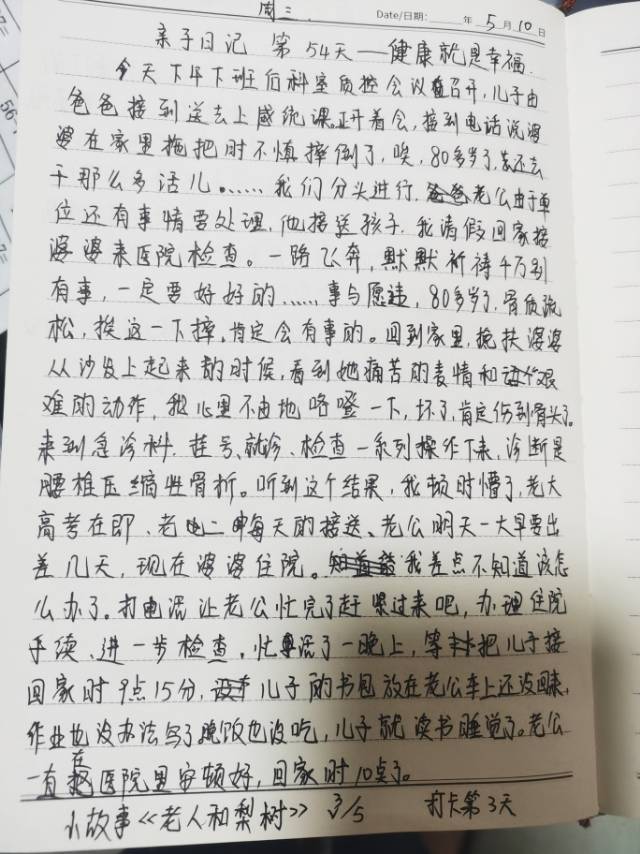 周三 Date/日期: 年 5 月 10 日
亲子日记 第54天 — 健康就是幸福.
今天下午下班后科室质控会议召开,儿子由
爸爸接到送去上感统课.正开着会,接到电话说婆
婆在家里拖把时不慎摔倒了,唉,80多岁了,还去
干那么多活儿……我们分头进行,老公由于单
位还有事情要处理,他接送孩子,我请假回家接
婆婆来医院检查。一路飞奔,默默祈祷千万别
有事,一定要好好的……事与愿违,80多岁了,骨质疏
松,挨这一下摔,肯定会有事的。回到家里,搀扶婆婆
从沙发上起来的时候,看到她痛苦的表情和艰
难的动作,我心里不由地咯噔一下,坏了,肯定伤到骨头了。
来到急诊科,挂号、就诊、检查一系列操作下来,诊断是
腰椎压缩性骨折。听到这个结果,我顿时懵了,老大
高考在即、老二每天的接送、老公明天一大早要出
差几天,现在婆婆住院。我差点不知道该怎
么办了。打电话让老公忙完了赶紧过来吧,办理住院
手续、进一步检查,忙活了一晚上,等把儿子接
回家时9点15分,儿子的书包放在老公车上还没回来,
作业也没办法写了晚饭也没吃,儿子就读书睡觉了。老公
一直在医院里安顿好,回家时10点了。
小故事《老人和梨树》3/5 打卡第3天